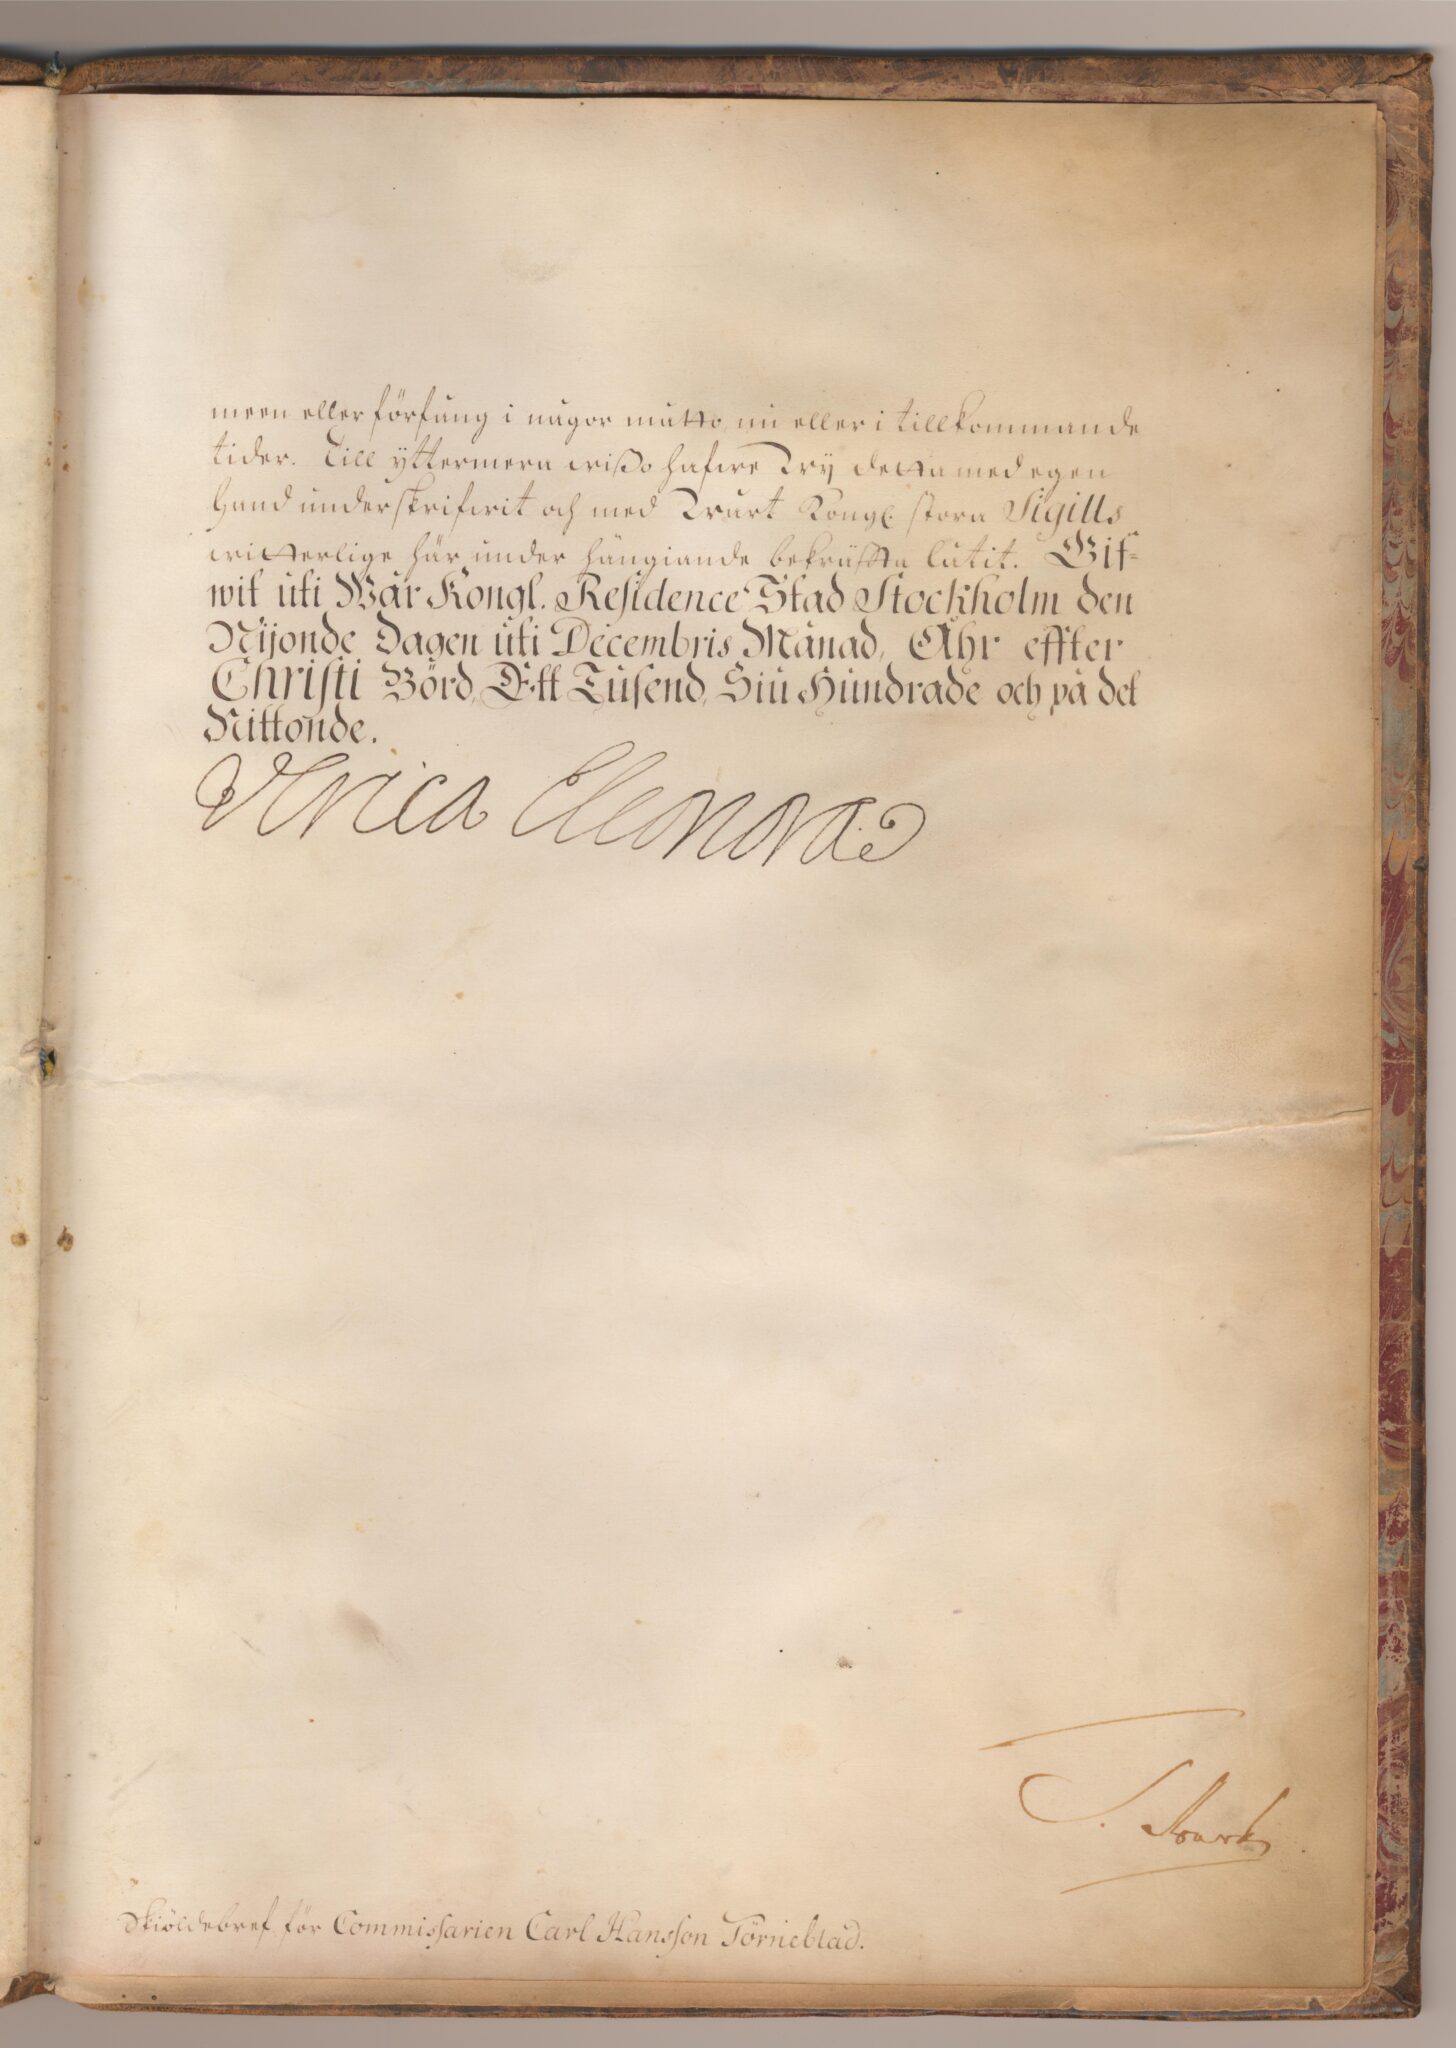 meen eller förfång i någor måtto, nu eller i tillkommande
tider. Till yttermera wißo hafwe Wy detta med egen
Hand underskrifwit och med Wårt Kongl. stora Sigills
witterlige här under hängiande bekräffta låtit. Gif=
wit uti Wår Kongl. Residence Stad Stockholm den
Nijonde Dagen uti Decembris Månad, Åhr effter
Christi Börd, Ett Tusend, Siu Hundrade och på det
Nittonde.
Vlrica Eleonora
Skiöldebref för Commissarien Carl Hansson Törneblad.